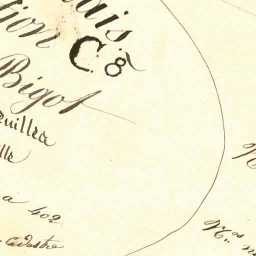 uis
tion C.
Bigot
uillea
lle
a 402
cadastre
N
N.os